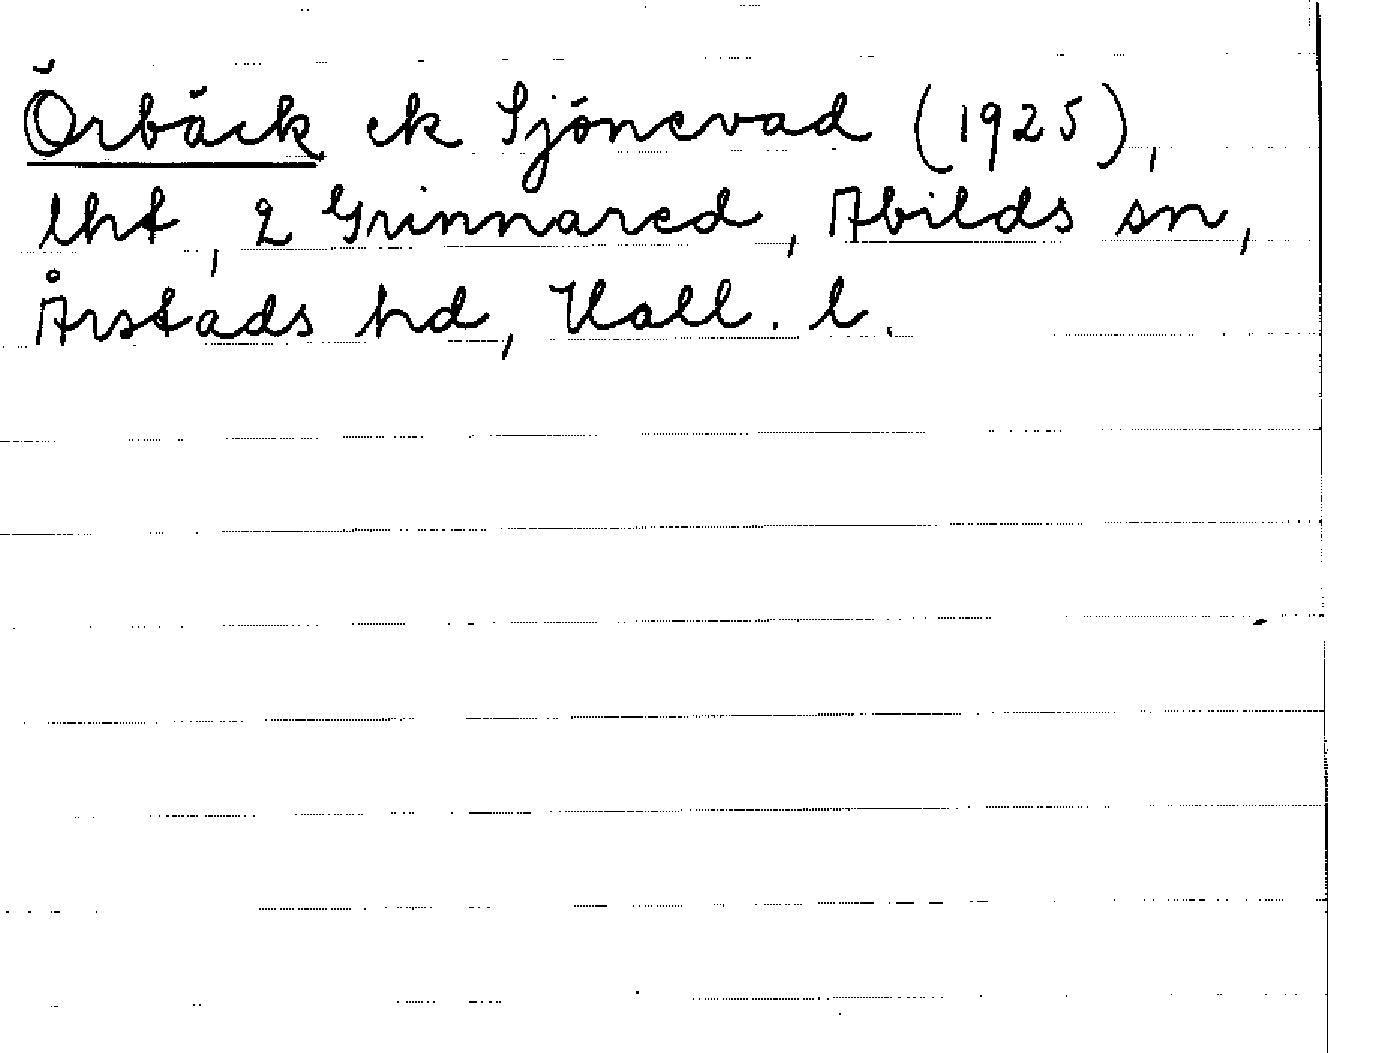 Örbäck ek Sjönevad (1925),
lht, 2 Grinnared, Abilds sn,
Årstads hd, Hall. l.